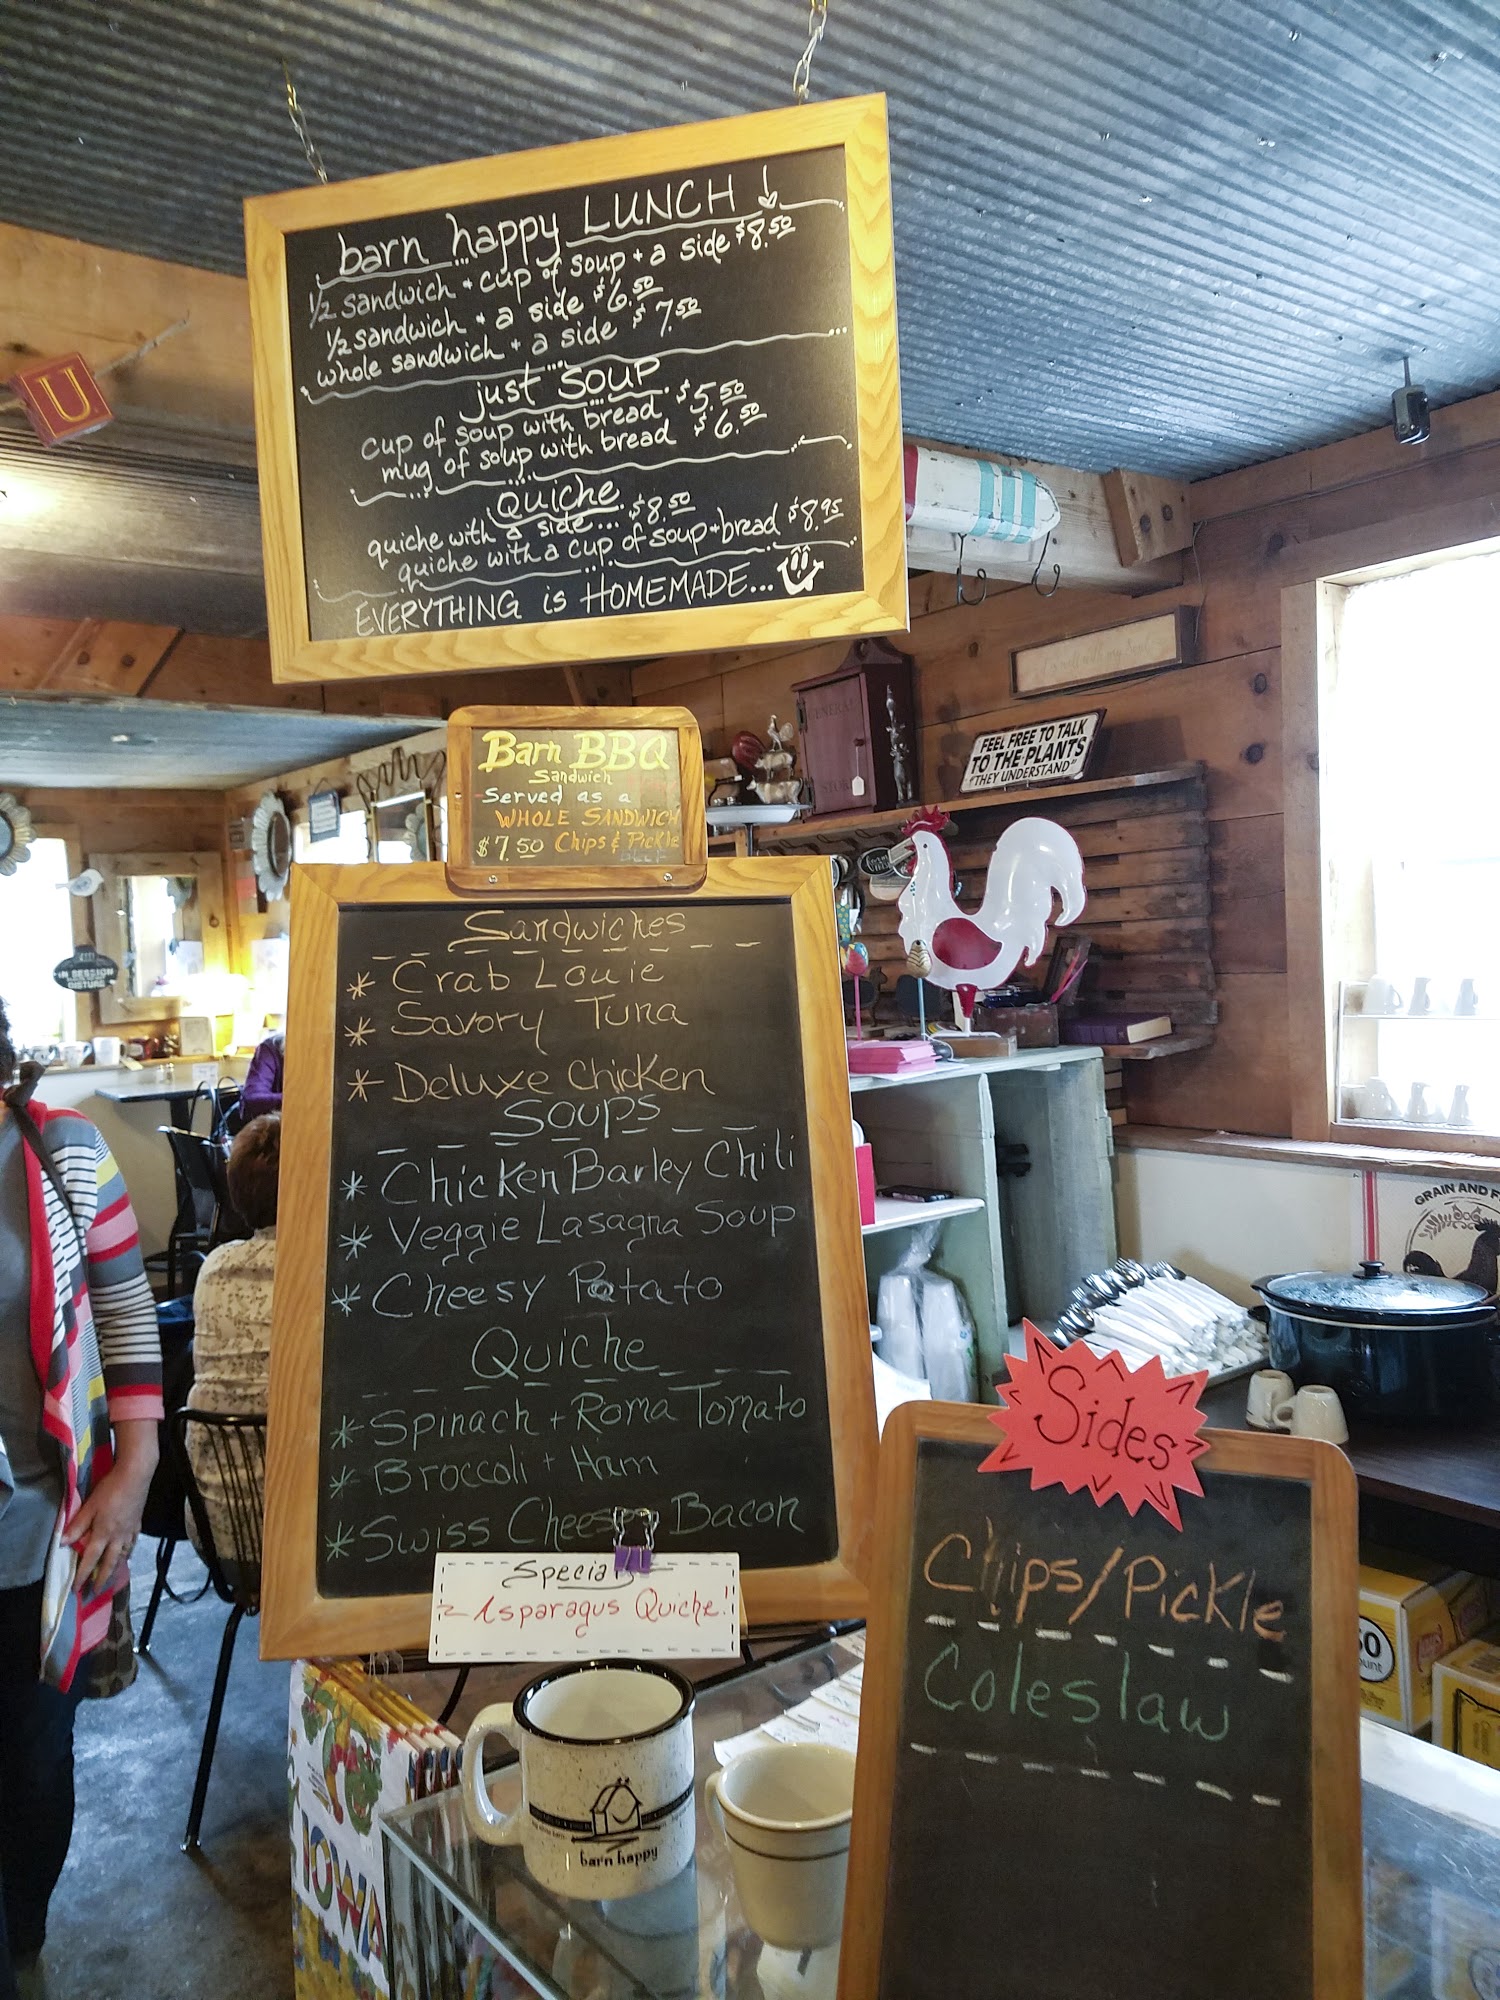 barn happy LUNCH
1/2 sandwich + cup of soup + a side $8.50
1/2 sandwich + a side $6.50
whole sandwich + a side $7.50
just SOUP
cup of soup with bread $5.50
mug of soup with bread $6.50
QUICHE
quiche with a side... $8.50
quiche with a cup of soup + bread $8.95
EVERYTHING is HOMEMADE...
U
Barn BBQ
Sandwich
Served as a
WHOLE SANDWICH
$7.50 Chips & Pickle
FEEL FREE TO TALK
TO THE PLANTS
"THEY UNDERSTAND"
GENERAL
STORE
IN SESSION
Sandwiches
* Crab Louie
* Savory Tuna
* Deluxe Chicken
Soups
* Chicken Barley Chili
* Veggie Lasagna Soup
* Cheesy Potato
Quiche
* Spinach + Roma Tomato
* Broccoli + Ham
* Swiss Cheese Bacon
Special
Asparagus Quiche!!
GRAIN AND
Sides
Chips/Pickle
Coleslaw
barn happy
IOWA